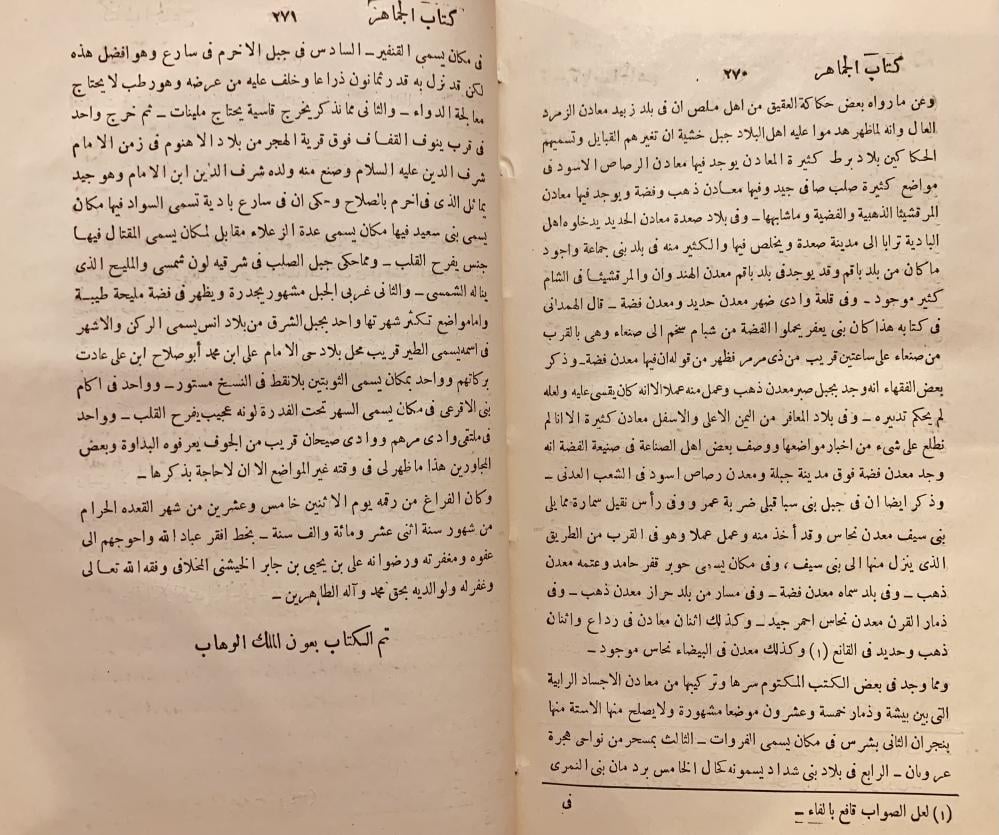 كتاب الجماهر ٢٧٠
وعن مارواه بعض حكاكة العقيق من اهل ملص ان فى بلد زبيد معادن الزمرد
العال وانه لماظهر هدموا عليه اهل البلاد جبل خشية ان تغيرهم القبايل وتسميهم
الحكاكين بلاد برط كثيرة المعادن يوجد فيها معادن الرصاص الاسود فى
مواضع كثيرة صلب صافى جيد وفيها معادن ذهب وفضة ويوجد فيها معادن
المرقشيثا الذهبية والفضية وماشابهها ــ وفى بلاد صعدة معادن الحديد يدخلوه اهل
البادية ترابا الى مدينة صعدة ويخلص فيها والكثير منه فى بلد بنى جماعة واجود
ماكان من بلد باقم وقد يوجد فى بلد باقم معدن الهند وان والمرقشيثا فى الشام
كثير موجود ــ وفى قلعة وادى ضهر معدن حديد ومعدن فضة ــ قال الهمدانى
فى كتابه هذا كان بنى يعفر يحملوا الفضة من شبام سخم الى صنعاء وهى بالقرب
من صنعاء على ساعتين قريب من ذى مرمر فظهر من قوله ان فيها معدن فضة ــ وذكر
بعض الفقهاء انه وجد بجبل صبر معدن ذهب وعمل منه عملا الا انه كان يقسى عليه ولعله
لم يحكم تدبيره ــ وفى بلاد المعافر من اليمن الاعلى والاسفل معادن كثيرة الا انا لم
نطلع على شىء من اخبار مواضعها ووصف بعض اهل الصناعة فى صنيعة الفضة انه
وجد معدن فضة فوق مدينة جبلة ومعدن رصاص اسود فى الشعب العدنى ــ
وذكر ايضا ان فى جبل بنى سبا قبلى ضربة عمر ووفى رأس نقيل سمارة مما يلى
بنى سيف معدن نحاس وقد أخذ منه وعمل عملا وهو فى القرب من الطريق
الذى ينزل منها الى بنى سيف ، وفى مكان يسمى حوبر قفر حامد وعتمه معدن
ذهب ــ وفى بلد سماه معدن فضة ــ وفى مسار من بلد حراز معدن ذهب ــ وفى
ذمار القرن معدن نحاس احمر جيد ــ وكذلك اثنان معادن فى رداع واثنان
ذهب وحديد فى القانع (١) وكذلك معدن فى البيضاء نحاس موجود ــ
ومما وجد فى بعض الكتب المكتوم سرها وتركيبها من معادن الاجساد الرابية
التى بين بيشة وذمار خمسة وعشرون موضعا مشهورة ولا يصلح منها الاستة منها
بنجران الثانى بشرس فى مكان يسمى الفروات ــ الثالث بمسحر من نواحى هجرة
عرومان ــ الرابع فى بلاد بنى شداد يسمونه كحال الخامس بردمان بنى النمرى
(١) لعل الصواب قافع بالفاء ــ
فى
كتاب الجماهر ٢٧١
فى مكان يسمى القنفير ــ السادس فى جبل الاخرم فى سارع وهو افضل هذه
لكن قد نزل به قدر ثمانون ذراعا وخلف عليه من عرضه وهو رطب لا يحتاج
معالجة الدواء ــ والثانى مما نذكر يخرج قاسية يحتاج ملينات ــ ثم خرج واحد
فى قرب ينوف القفاف فوق قرية الهجر من بلاد الاهنوم فى زمن الامام
شرف الدين عليه السلام وصنع منه ولده شرف الدين ابن الامام وهو جيد
يماثل الذى فى اخرم بالصلاح وحكى ان فى سارع بادية تسمى السواد فيها مكان
يسمى بنى سعيد فيها مكان يسمى عدة الزعلاء مقابل لمكان يسمى المقتال فيها
جنس يفرح القلب ــ ومما حكى جبل الصلب فى شرقيه لون شمسى والمليح الذى
يناله الشمسى ــ والثانى غربى الجبل مشهور بجدرة ويظهر فى فضة مليحة طيبة
وامامواضع تكثر شهرتها واحد بجبل الشرق من بلاد انس يسمى الركن والاشهر
فى اسمه يسمى الطير قريب محل بلاد حى الامام على ابن محمد أبو صلاح ابن على عادت
بركاتهم وواحد بمكان يسمى الثوبتين بلا نقط فى النسخ مستور ــ وواحد فى اكام
بنى الاقرعى فى مكان يسمى السهر تحت الفدرة لونه عجيب يفرح القلب ــ وواحد
فى ملتقى وادى مرهم ووادى صيحان قريب من الجوف يعرفوه البداوة وبعض
المجاورين هذا ما ظهر لى فى وقته غير المواضع الا ان لا حاجة بذكرها ــ
وكان الفراغ من رقمه يوم الاثنين خامس وعشرين من شهر القعده الحرام
من شهور سنة اثنى عشر ومائة والف سنة ــ بخط افقر عباد الله واحوجهم الى
عفوه ومغفرته ورضوانه على بن يحيى بن جابر الخيشنى الخلافى وفقه الله تعالى
وغفر له ولوالديه بحق محمد وآله الطاهرين ــ
تم الكتاب بعون الملك الوهاب